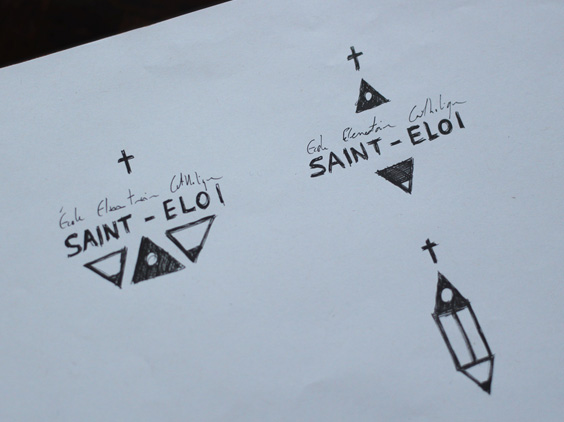 École Élémentaire Catholique
SAINT-ELOI
École Élémentaire Catholique
SAINT-ELOI